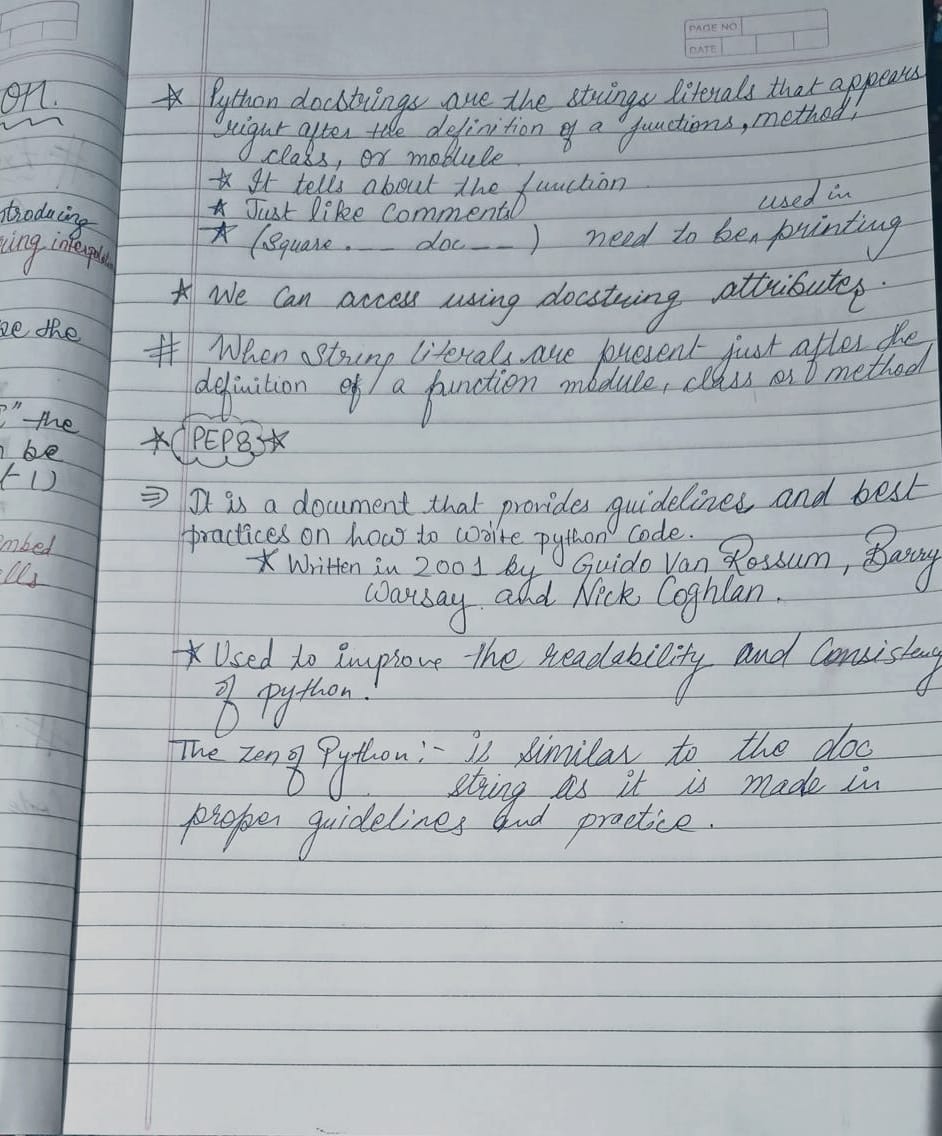 PAGE NO
DATE
on.
stroducing
ring interpola
be the
" the
be
(-1)
mbed
lls
* Python docstrings are the strings literals that appears
right after the definition of a functions, method,
class, or module
* It tells about the function
* Just like comments
used in
* (Square.__ doc__) need to be printing
* We can access using docstring attributes.
# When String literals are present just after the
definition of a function module, class or method
* PEP8 *
⇒ It is a document that provides guidelines and best
practices on how to write python code.
* Written in 2001 by Guido Van Rossum, Barry
Warsay and Nick Coghlan.
* Used to improve the readability and Consistency
of python.
The zen of Python:- is similar to the doc
string as it is made in
proper guidelines and practice.